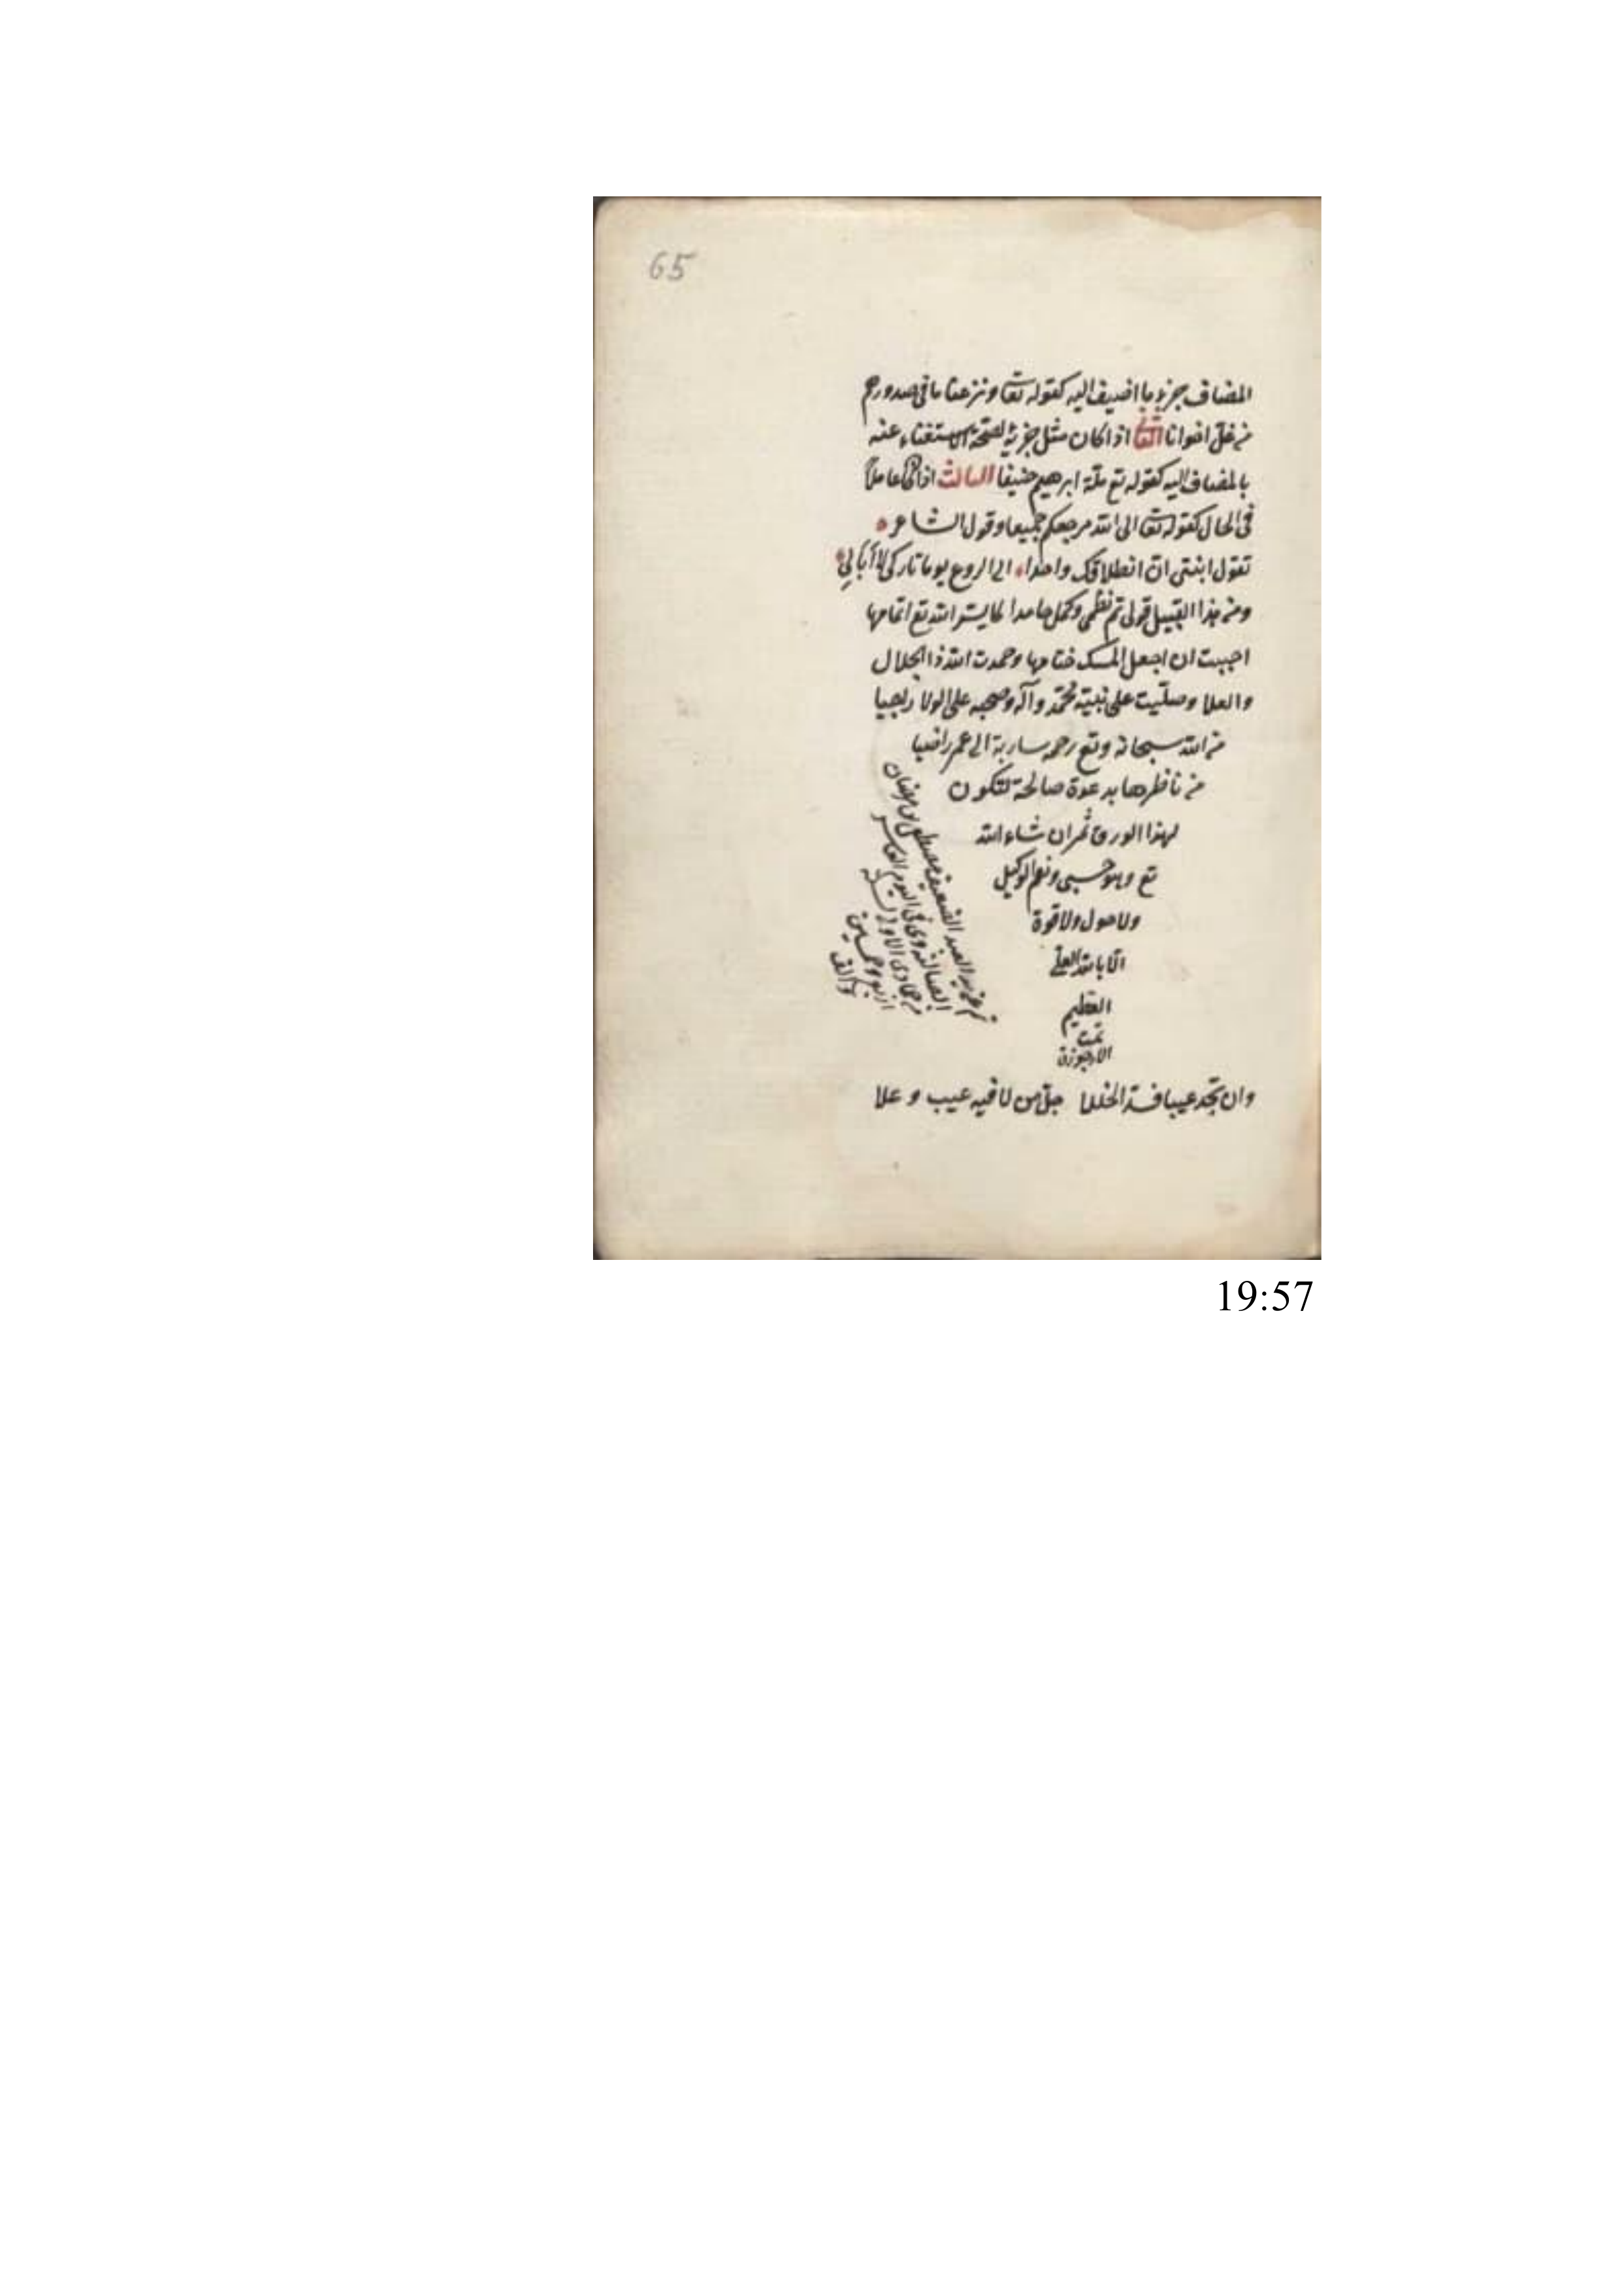 65
المضاف جزء ما اضيف اليه كقوله تعا ونزعنا ما فى صدورهم
من غل اخوانا الثانى اذا كان مثل جزئه لصحة الاستغناء عنه
بالمضاف اليه كقوله تع ملة ابرهيم حنيفا الثالث اذا كان عاملاً
فى الحال كقوله تعا الى الله مرجعكم جميعا وقول الشاعر
تقول ابنتى ان انطلاقك واحدا الى الروع يوما تاركى لا أبا لى
ومن هذا القبيل قولى تم نظمى وكمل حامدا لما يسر الله تع اتمامها
احببت ان اجعل المسك ختامها وحمدت الله ذا الجلال
والعلا وصليت على نبيه محمد وآله وصحبه على الولا
من الله سبحانه وتع رحمه سارية الى عمر راضيا
من ناظرها بدعوة صالحة لتكون
لهذا الورق ثمر ان شاء الله
تع وهو حسبى ونعم الوكيل
ولا حول ولا قوة
الا بالله العلى
العظيم
تمت
الارجوزة
العبد الضعيف مصطفى بن رمضان
فى اليوم العاشر
من جمادى الاولى لسنة
وخمسين
والف
وان تجد عيبا فسد الخللا جل من لا فيه عيب و علا
19:57